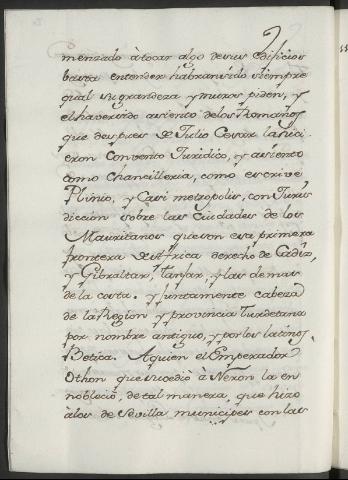 menzado à tocar algo de sus Edificios
basta entender habran sido siempre
qual su grandeza y muros piden, y
el haver sido asiento de los Romaños
que despues de Julio Cesar la hici
eron Convento Juridico, y asiento
como Chancilleria, como escrive
Plinio, y Casi metropolis, con Juris
diccion sobre las Ciudades de los
Mauritanos que son esa primera
frontera de Africa derecho de Cadiz,
y Gibraltar, Tanjar, y las demas
de la costa. y Juntamente cabeza
de la Region y provincia Turdetana
por nombre antiguo, y por los latinos
Betica. A quien el Emperador
Othon que sucedió à Neron la en
nobleció, de tal manera, que hizo
à los de Sevilla municipes con las